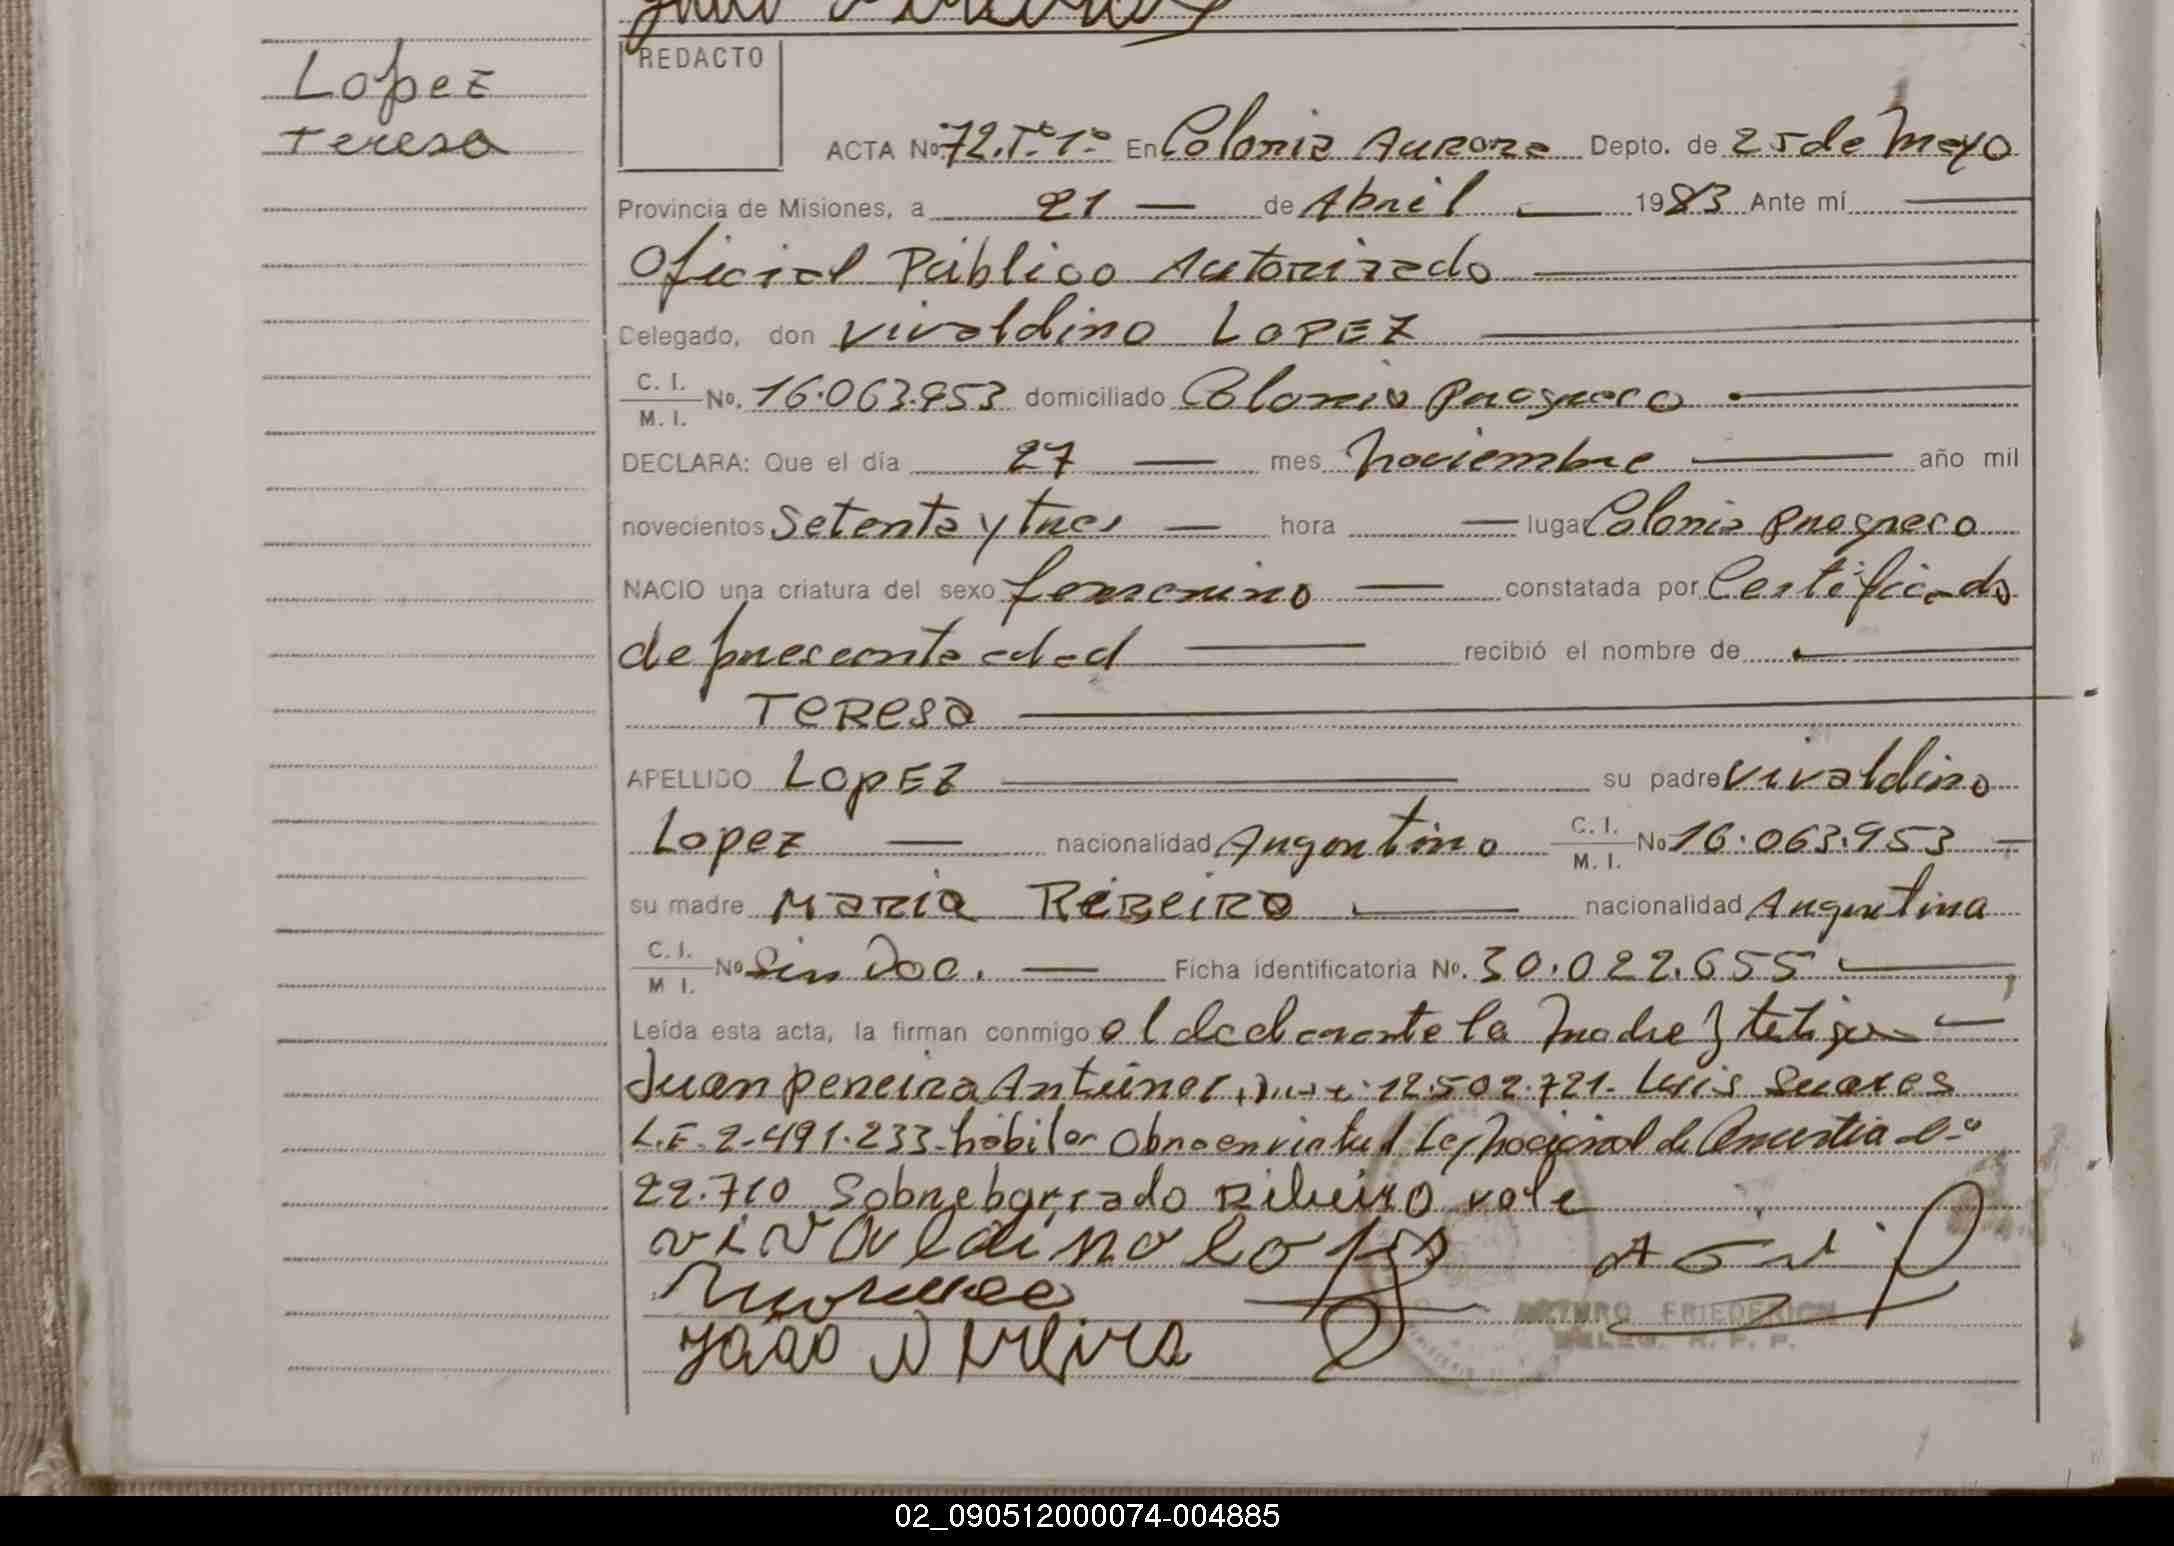 Lopez
Teresa
REDACTO
ACTA No. 72.Tº.1º En Colonia Aurora Depto. de 25 de Mayo
Provincia de Misiones, a 21 — de Abril — 1983 Ante mí —
Oficial Público Autorizado —
Delegado, don Vivaldino LOPEZ —
C. I.
M. I. No. 16.063.953 domiciliado Colonia progreso —
DECLARA: Que el día 27 — mes noviembre — año mil
novecientos setenta y tres — hora — luga Colonia progreso
NACIO una criatura del sexo femenino — constatada por Certificado
de presenta edad — recibió el nombre de —
TERESA —
APELLIDO LOPEZ — su padre Vivaldino
Lopez — nacionalidad Argentino C. I.
M. I. No 16.063.953 —
su madre MARIA RIBEIRO — nacionalidad Argentina
C. I.
M I. No Sin Doc. — Ficha identificatoria No. 30.022.655 —
Leída esta acta, la firman conmigo el declarante la madre y tetigos —
Juan pereira Antúnes 12.502.721. Luis Suares
L.E. 2.491.233. hábiles Obra en virtud Ley nacional de Amnistia
22.710 Sobreborrado Ribeiro vale
vivaldino lopes
João Pereira
ARTURO FRIEDERICH
R. P. P.
02_090512000074-004885